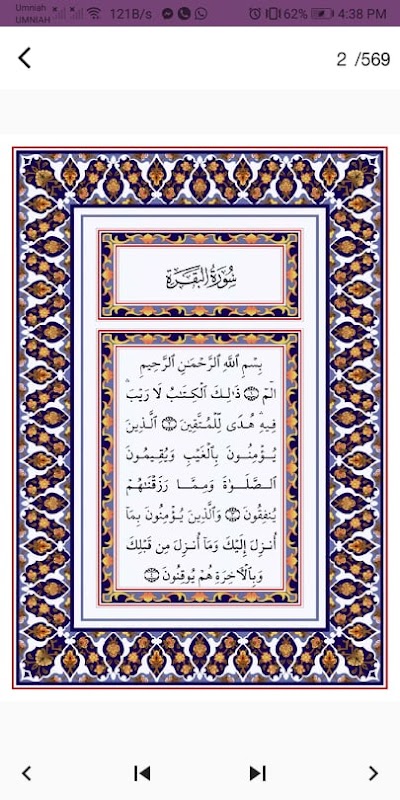 Umniah
UMNIAH
121B/s
62%
4:38 PM
2 /569
سُورَةُ البَقَرَةِ
بِسْمِ ٱللَّهِ ٱلرَّحْمَٰنِ ٱلرَّحِيمِ
الٓمٓ ۝١ ذَٰلِكَ ٱلْكِتَٰبُ لَا رَيْبَ ۛ
فِيهِ ۛ هُدًى لِّلْمُتَّقِينَ ۝٢ ٱلَّذِينَ
يُؤْمِنُونَ بِٱلْغَيْبِ وَيُقِيمُونَ
ٱلصَّلَوٰةَ وَمِمَّا رَزَقْنَٰهُمْ
يُنفِقُونَ ۝٣ وَٱلَّذِينَ يُؤْمِنُونَ بِمَا
أُنزِلَ إِلَيْكَ وَمَآ أُنزِلَ مِن قَبْلِكَ
وَبِٱلْأَخِرَةِ هُمْ يُوقِنُونَ ۝٤